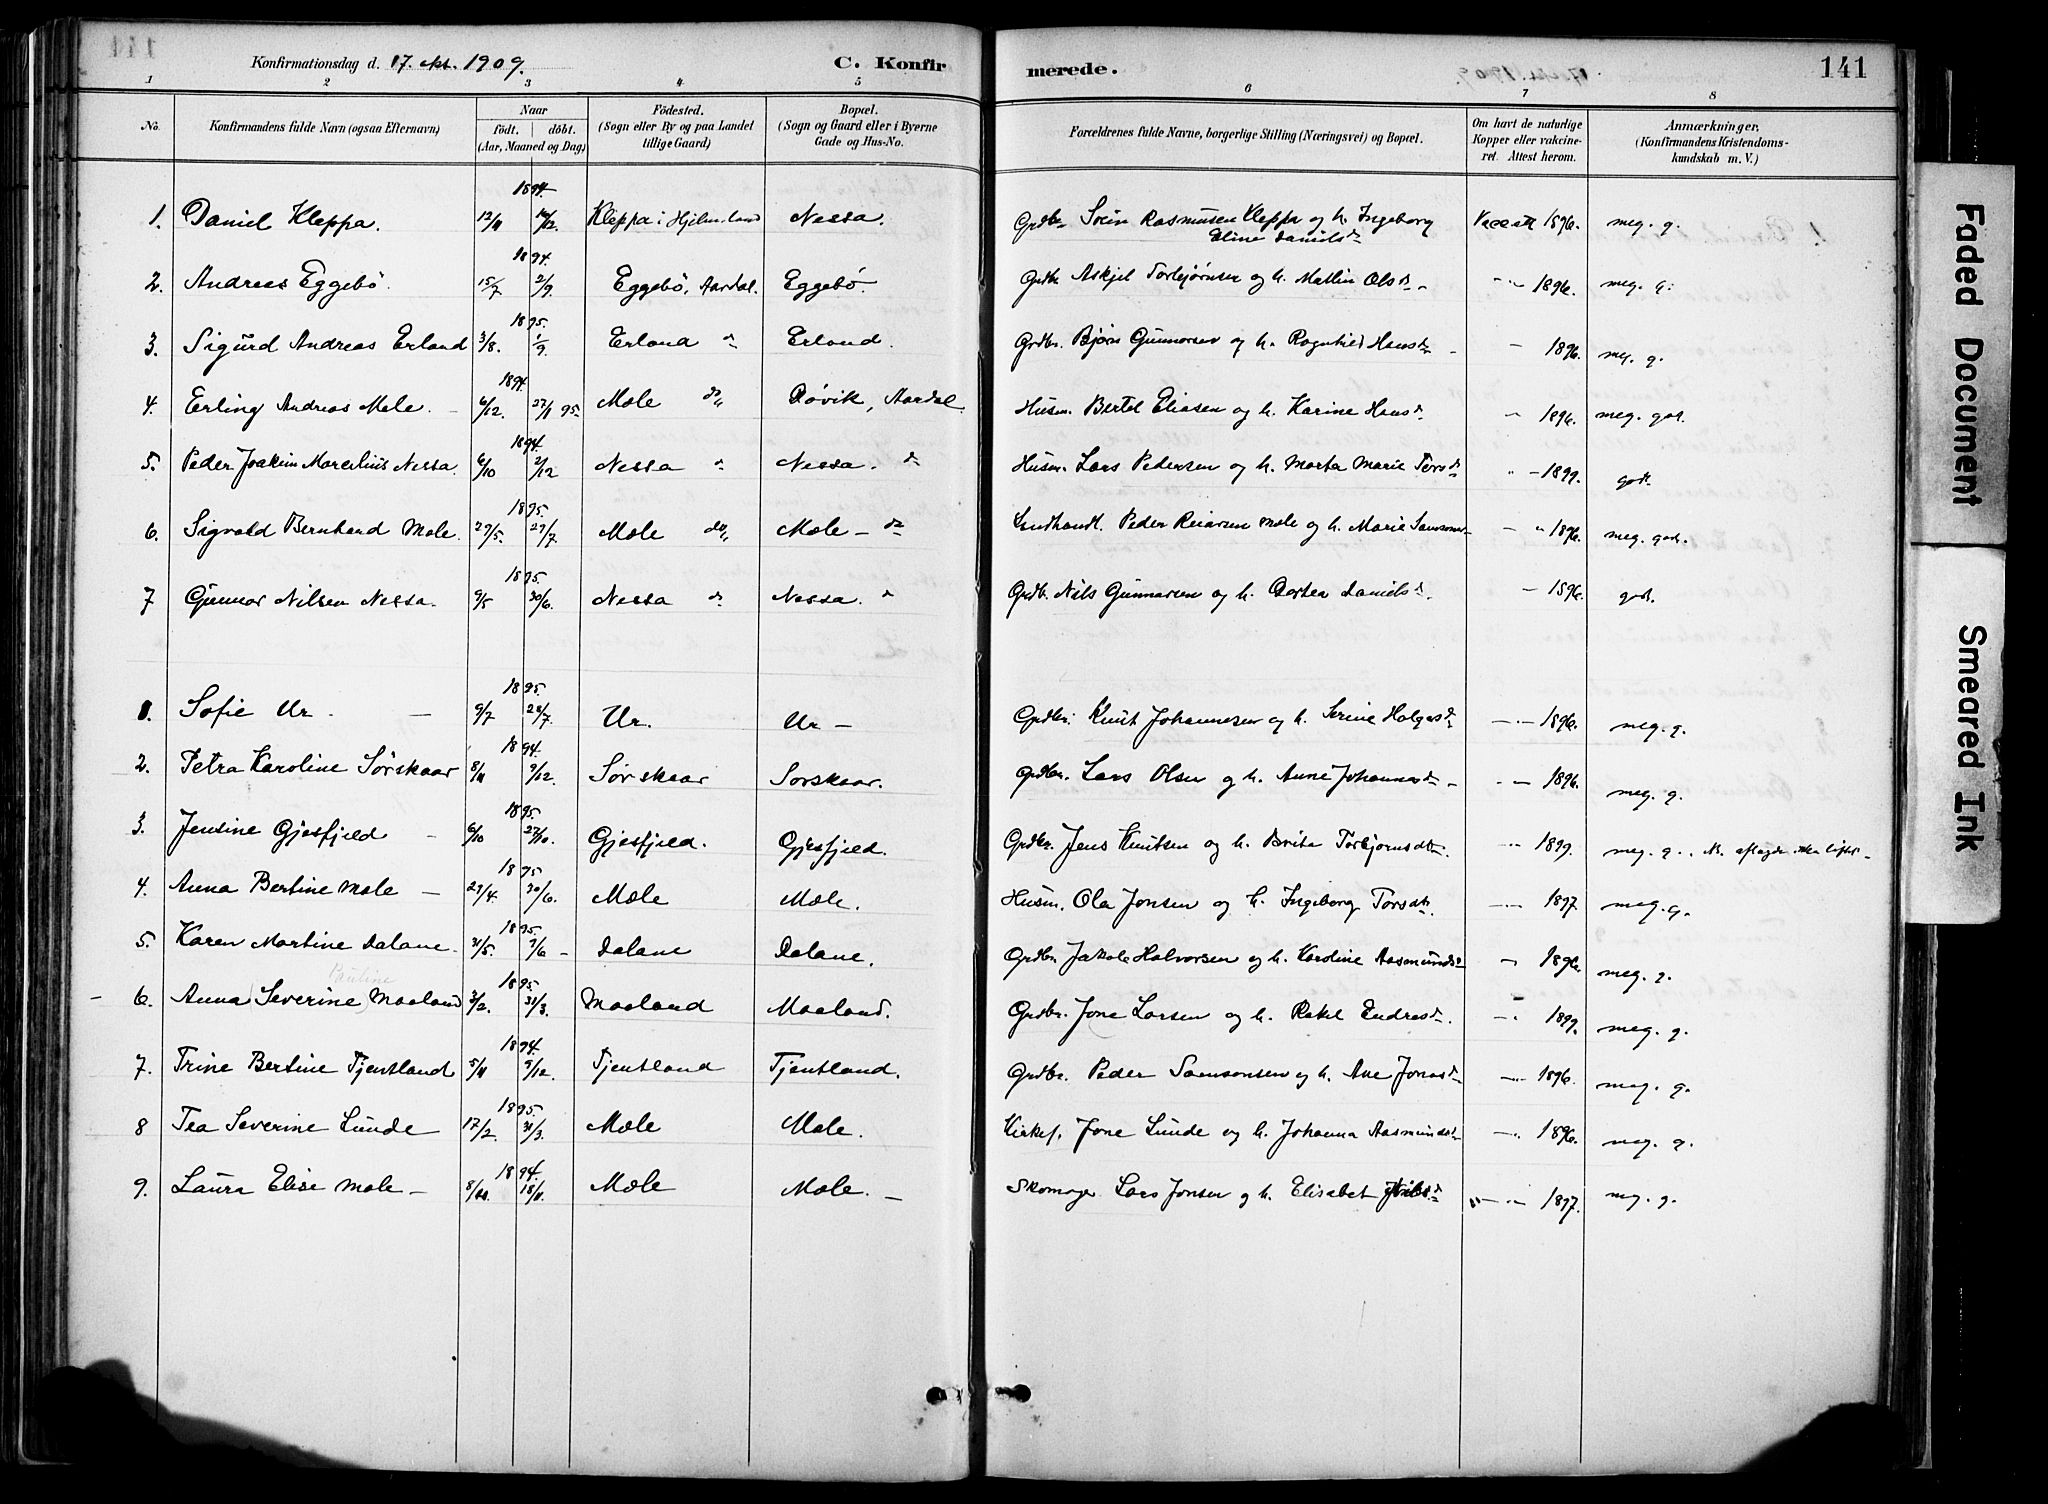 Konfirmationsdag d. 17. okt. 1909. C. Konfirmerede. 141
1 2 3 4 5 6 7 8
No. Konfirmandens fulde Navn (ogsaa Efternavn) Naar født. døbt. (Aar, Maaned og Dag) Födested. (Sogn eller By og paa Landet tillige Gaard) Bopæl. (Sogn og Gaard eller i Byerne Gade og Hus-No. Forældrenes fulde Navne, borgerlige Stilling (Næringsvei) og Bopæl. Om havt de naturlige Kopper eller vakcineret. Attest herom. Anmærkninger, (Konfirmandens Kristendomskundskab m. V.)
1894.
1. Daniel Kleppa. 12/11 16/12. Kleppa i Hjelmeland Nessa. Grdbr Svein Rasmusen Kleppa og h. Ingeborg Eline Danielsdr Vacc att 1896. meg. g.
1894.
2. Andreas Eggebö. 15/7 2/9. Eggebö, Aardal. Eggebö. Grdbr Askjel Torbjørnsen og h. Mallin Olsdr - " - 1896. meg. g.
1895.
3. Sigurd Andreas Erland 3/8. 1/9. Erland do Erland. Grdbr. Bjørn Gunnarsen og h. Ragnhild Hansdr - - 1896. meg. g.
1894.
4. Erling Andreas Mæle. - 6/12. 27/1 95. Mæle do, Døvik, Aardal. Husm. Bertel Eliasen og h. Karine Hansdr " 1896. meg. god.
1894.
5. Peder Joakim Marelius Nessa. 6/10 2/12 Nessa do Nessa. do Husm. Lars Pedersen og h. Marta Marie Torsdr " - 1899. god.
1895.
6. Sigvald Bernhard Mæle. 29/5. 29/7. Mæle do, Mæle - do Landhandl. Peder Reiarsen Mæle og h. Marie Samsonsdr - " 1896. meg. god.
1895.
7 Gunnar Nilsen Nessa. 9/5 30/6. Nessa do Nessa. do Grdbr. Nils Gunnarsen og h. Dortea Danielsdr. - 1896. god.
1895.
1. Sofie Ur. - 9/7 28/7. Ur. Ur - Grdbr. Knut Johannesen og h. Serine Holgersdr - " - 1896. meg. g.
1894.
2. Petra Karoline Sørskaar 8/11 9/12. Sørskaar Sørskaar. Grdbr. Lars Olsen og h. Anne Johannesdr - - " - 1896. meg. g.
1895.
3. Jensine Gjesfjeld - 6/10 27/10. Gjesfjeld. Gjesfjeld. Grdbr. Jens Knutsen og h. Brita Torbjørnsdtr. - " - 1899. meg. g. . N. aflagde ikke løfte. -
1895
4. Anna Bertine Mæle - 29/4. 30/6. Mæle Mæle. Husm. Ola Jonsen og h. Ingeborg Torsdtr. - " - 1897 meg. g.
1895.
5. Karen Martine Dalane. 31/5. 9/6 - Dalane Dalane. Grdbr. Jakob Halvorsen og h. Karoline Aasmundsdr - 1896. meg. g.
Pauline 1895.
- 6. Anna (Severine) Maaland 3/2. 31/3. Maaland Maaland. Grdbr. Jone Larsen og h. Rakel Endresdr. - " 1899. meg. g.
1894.
7. Trine Bertine Tjentland 5/11 9/12. Tjentland Tjentland. Grdbr. Peder Samsonsen og h. Ane Jonasdr - " - 1896. meg. g.
1895.
8 Tea Severine Lunde 17/2. 31/3. Mæle Mæle. Kirkes. Jone Lunde og h. Johanna Aasmundsdr - " 1896. meg. g.
1894.
9. Laura Elise Mæle - 8/10. 18/11. Mæle Mæle. - Skomager Lars Jonsen og h. Elisabet Nilsdr " - " - 1897. meg. g.
Faded Document
Smeared Ink